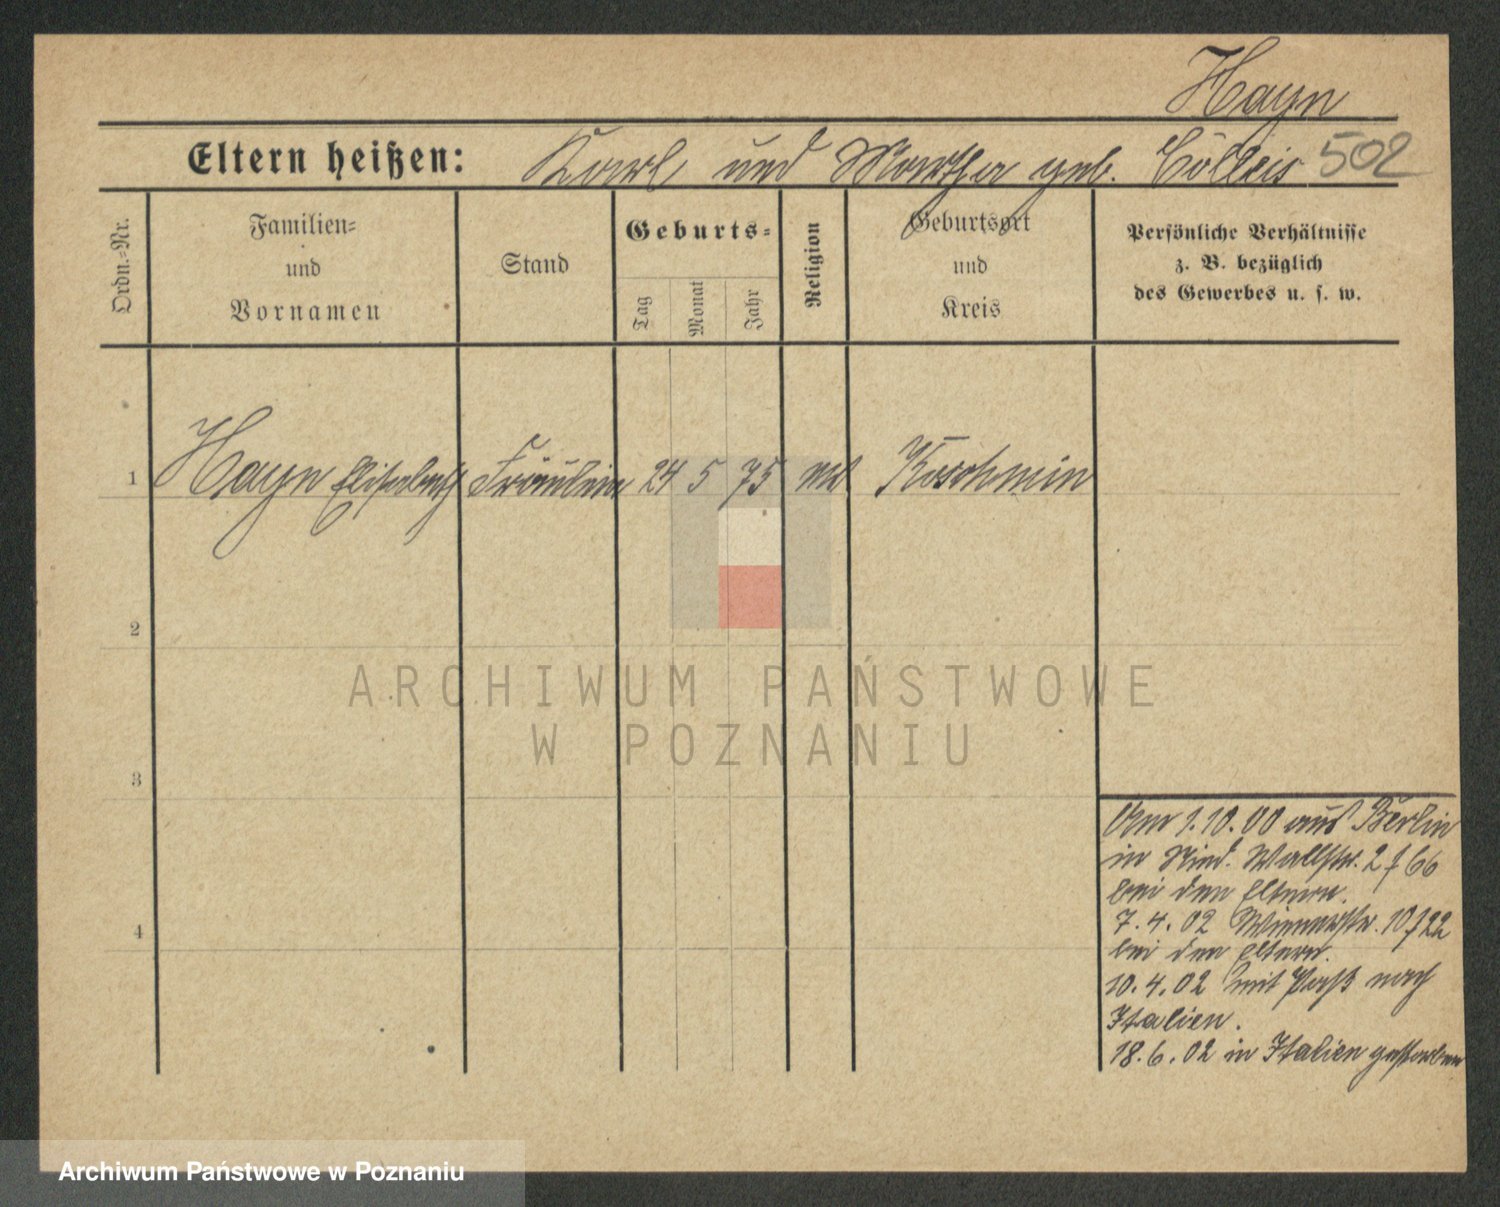 Hayn
Eltern heißen: Karl und Martha geb. Cölleis 502
Ordn.-Nr.
Familien-
und
Vornamen
Stand
Geburts-
Tag
Monat
Jahr
Religion
Geburtsort
und
Kreis
Persönliche Verhältnisse
z. B. bezüglich
des Gewerbes u. s. w.
1 Hayn Elisabeth Fräulein 24 5 75 Koschmin
2
3
4
Am 1.10.00 aus Berlin
in Wallstr. 2 f 66
bei den Eltern.
7. 4. 02 Wienerstr. 10 f 22
bei den Eltern.
10. 4. 02 mit Paß nach
Italien.
18. 6. 02 in Italien gestorben
ARCHIWUM PAŃSTWOWE
W POZNANIU
Archiwum Państwowe w Poznaniu